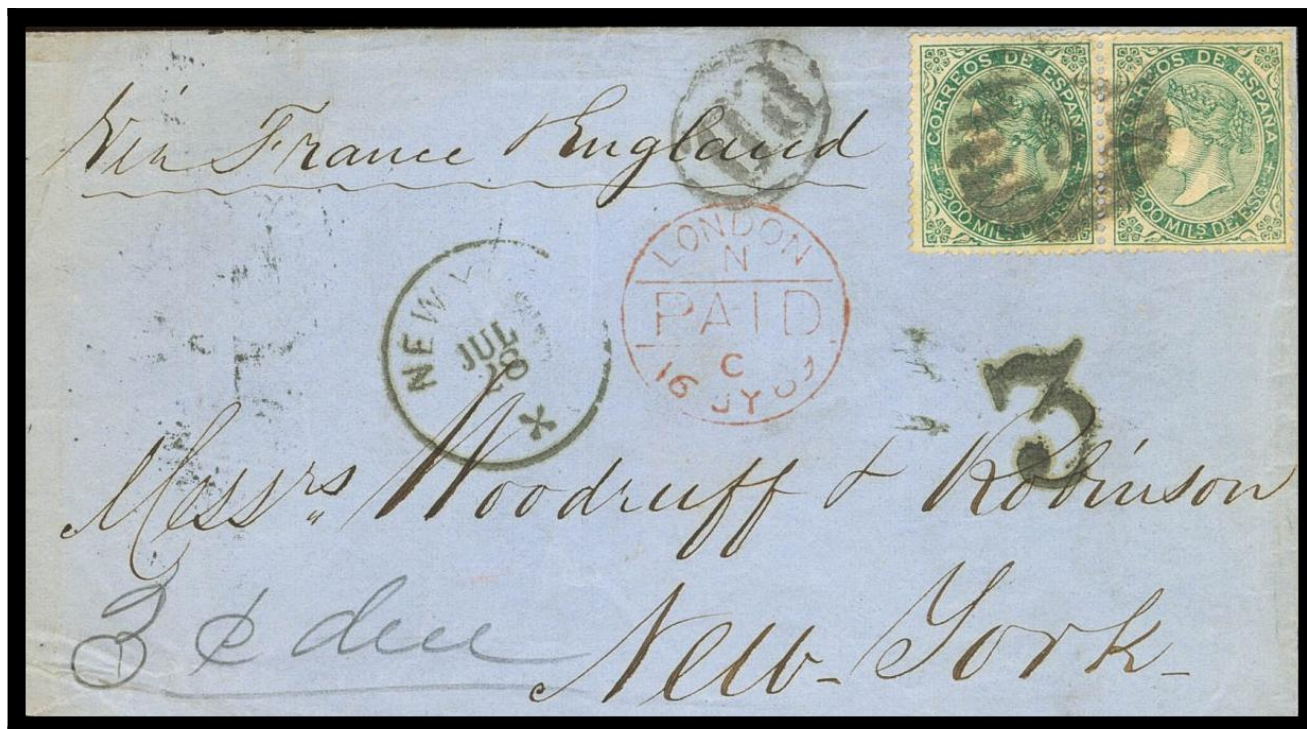 Via France & England
CORREOS DE ESPAÑA
200 MILS. DE ESC.
CORREOS DE ESPAÑA
200 MILS. DE ESC.
LONDON
N
PAID
C
16 JY 67
NEW
JUL
28
3
Messrs. Woodruff & Robinson
3 ¢ due
New-York-